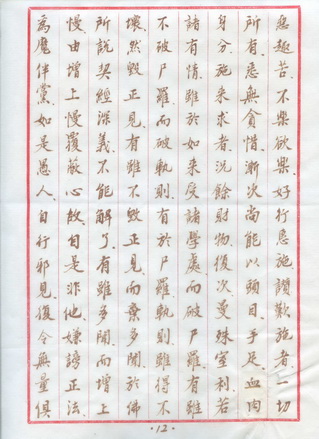 惡趣苦、不樂欲樂、好行惠施、讚歎施者、一切
所有悉無貪惜、漸次尚能以頭目手足血肉
身分施來求者、況餘財物、復次曼殊室利、若
諸有情、雖於如來受諸學處、而破尸羅、有雖
不破尸羅、而破軌則、有於尸羅軌則、雖得不
壞、然毀正見、有雖不毀正見、而棄多聞、於佛
所說契經深義、不能解了、有雖多聞、而增上
慢、由增上慢、覆蔽心故、自是非他、嫌謗正法、
為魔伴黨、如是愚人、自行邪見、復令無量俱
·12·